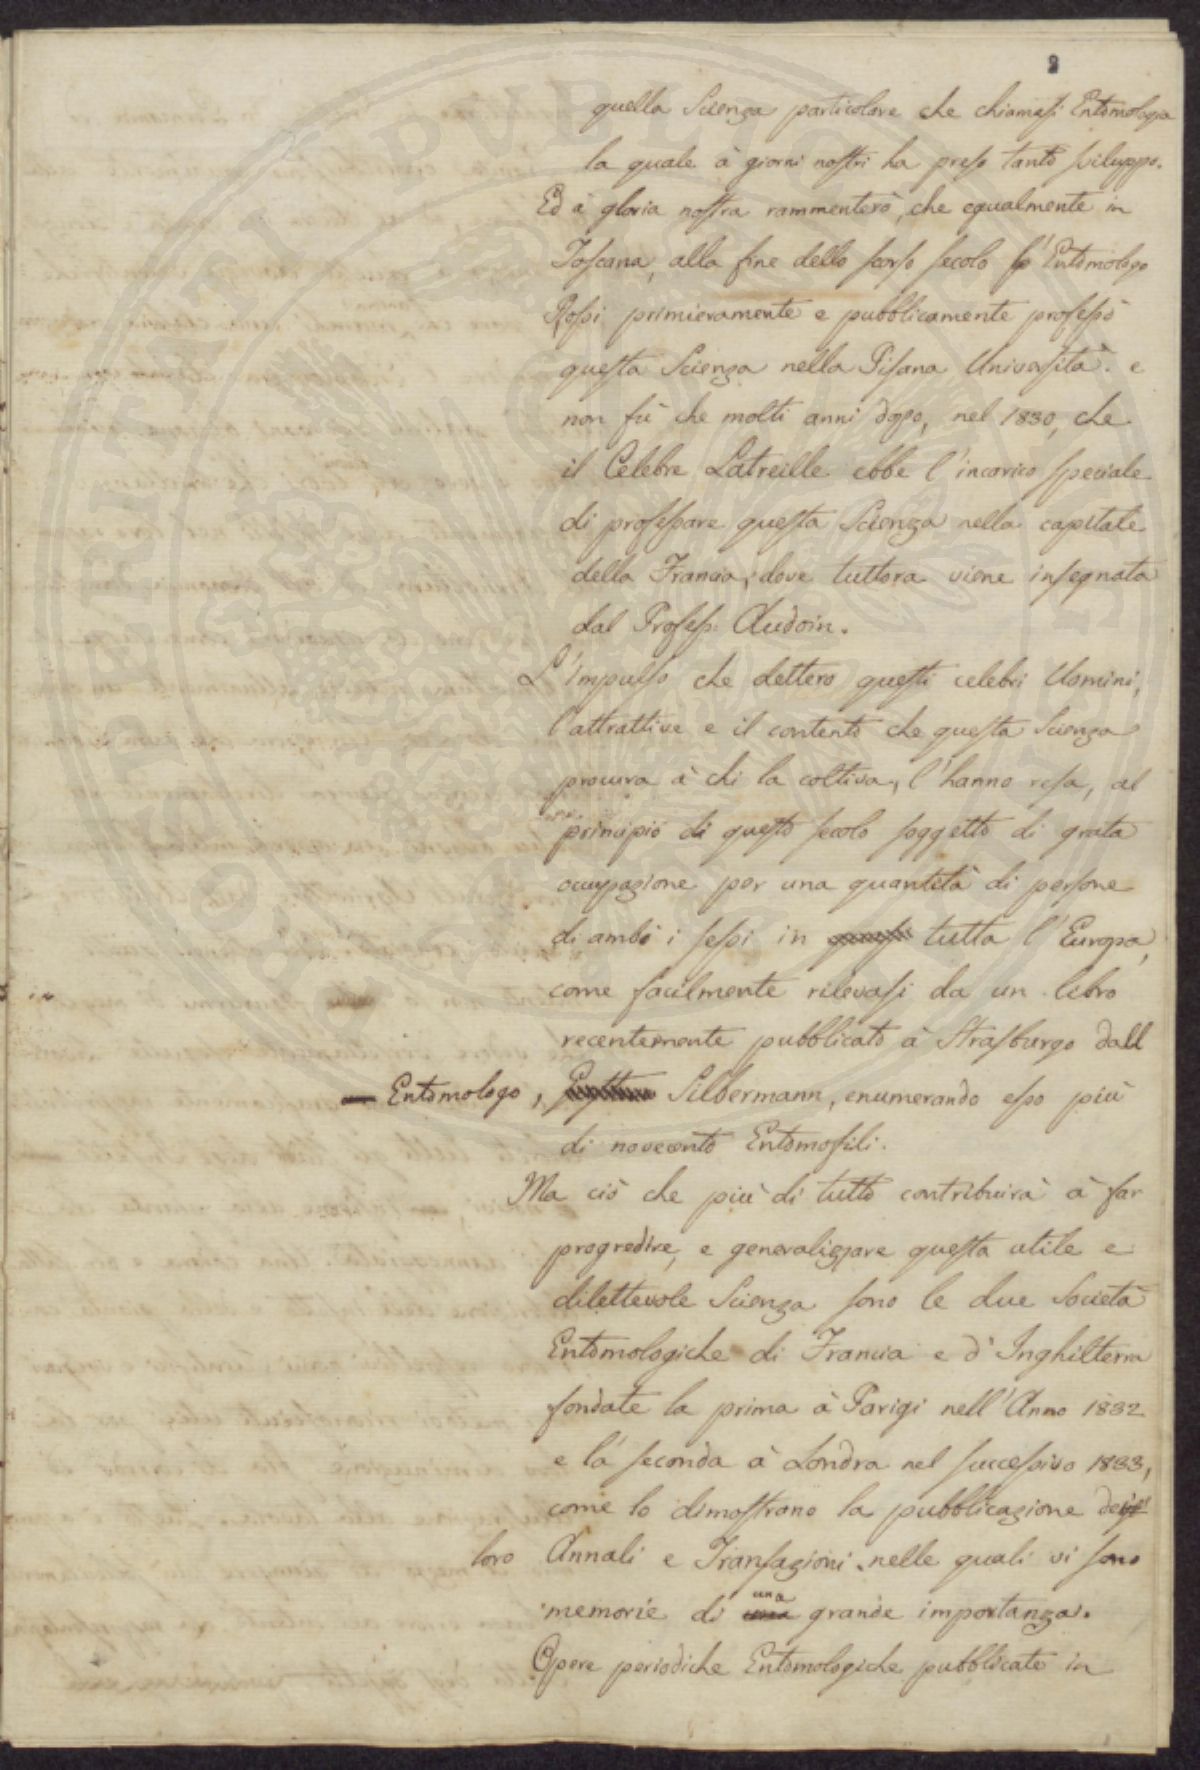 2
quella Scienza particolare che chiamasi Entomologia
la quale à giorni nostri ha preso tanto sviluppo.
Ed à gloria nostra rammenterò, che egualmente in
Toscana, alla fine dello scorso secolo l'Entomologo
Rossi primieramente e pubblicamente professò
questa Scienza nella Pisana Università. e
non fù che molti anni dopo, nel 1830, che
il Celebre Latreille ebbe l'incarico speciale
di professare questa Scienza nella capitale
della Francia, dove tuttora viene insegnata
dal Profess. Audoin.
L'impulso che dettero questi celebri Uomini,
l'attrattive e il contento che questa Scienza
procura à chi la coltiva, l'hanno resa, al
principio di questo secolo soggetto di grata
occupazione per una quantità di persone
di ambi i sessi in tutta l'Europa,
come facilmente rilevasi da un libro
recentemente pubblicato à Strasburgo dall
Entomologo, Silbermann, enumerando esso più
di novecento Entomofili.
Ma ciò che più di tutto contribuirà à far
progredire, e generalizzare questa utile e
dilettevole Scienza sono le due Società
Entomologiche di Francia e d'Inghilterra
fondate la prima à Parigi nell'Anno 1832
e la seconda à Londra nel successivo 1833,
come lo dimostrano la pubblicazione dei
loro Annali e Transazioni nelle quali vi sono
memorie di una grande importanza.
Opere periodiche Entomologiche pubblicate in